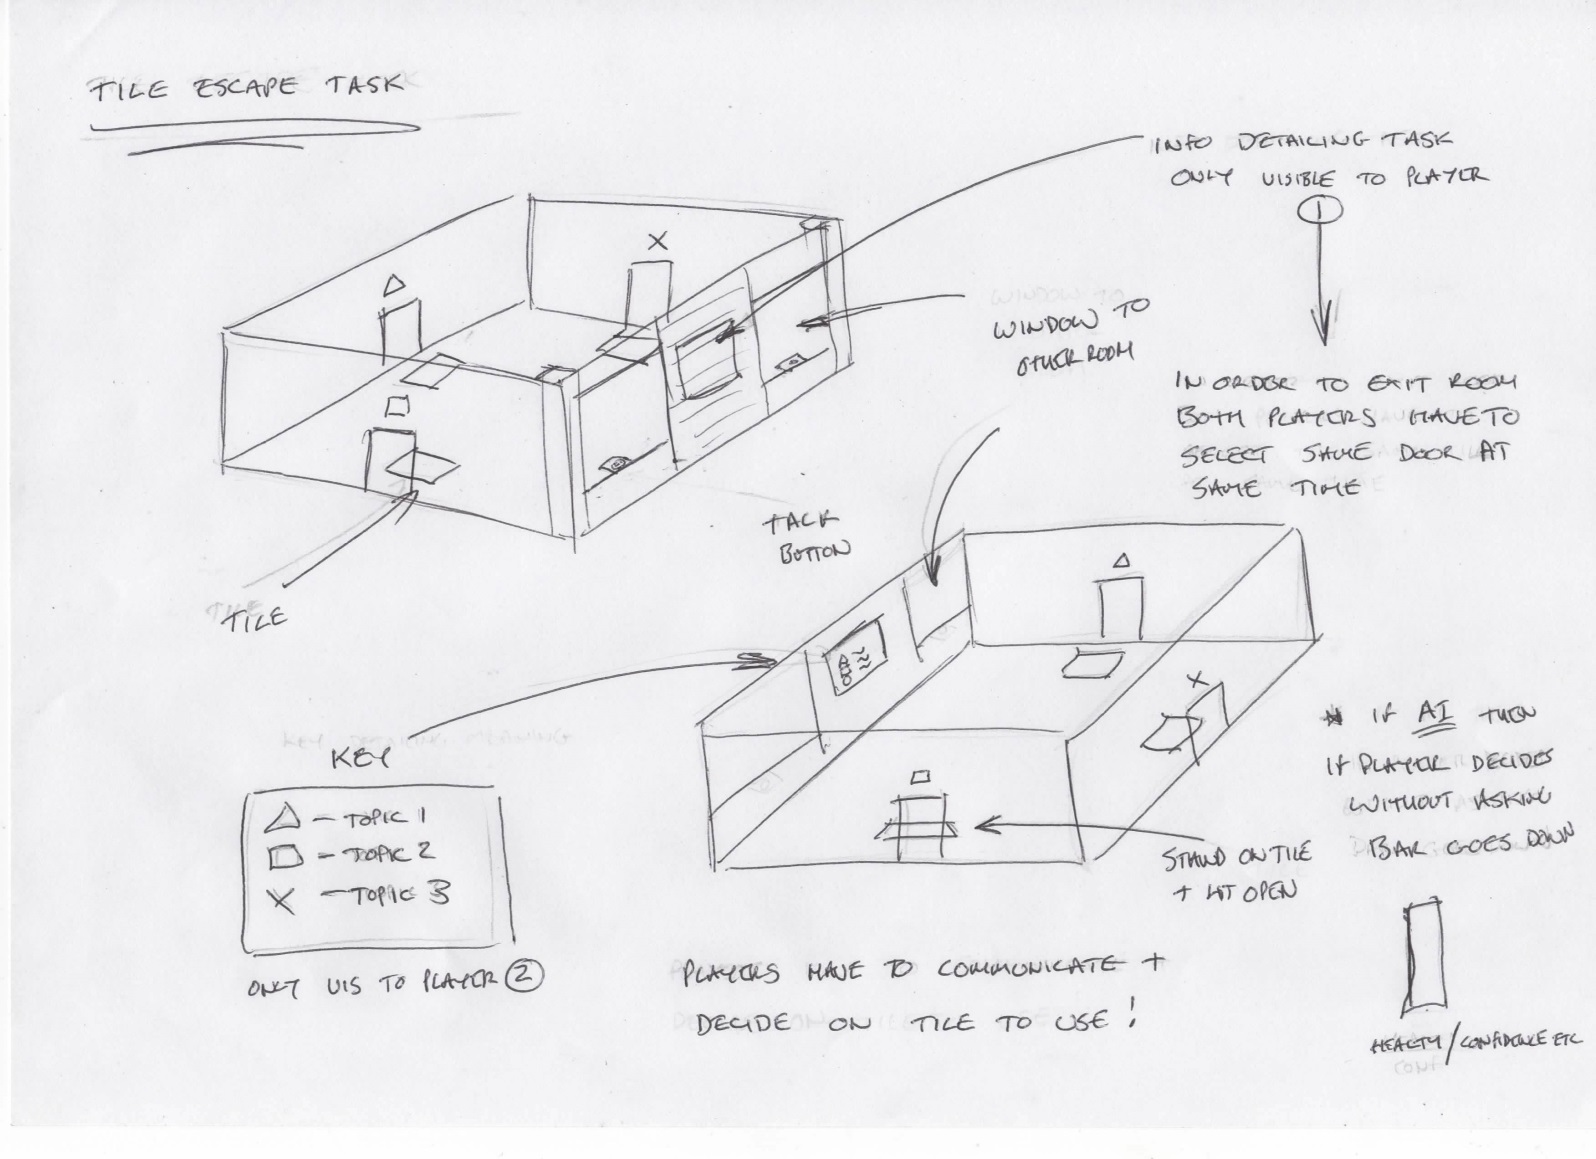 TILE ESCAPE TASK
INFO DETAILING TASK
ONLY VISIBLE TO PLAYER
1
X
WINDOW TO
OTHER ROOM
IN ORDER TO EXIT ROOM
BOTH PLAYERS HAVE TO
SELECT SAME DOOR AT
SAME TIME
TALK
BUTTON
TILE
X
KEY
△ - TOPIC 1
□ - TOPIC 2
X - TOPIC 3
ONLY VIS TO PLAYER 2
* IF AI THEN
IF PLAYER DECIDES
WITHOUT ASKING
BAR GOES DOWN
STAND ON TILE
+ HIT OPEN
PLAYERS HAVE TO COMMUNICATE +
DECIDE ON TILE TO USE!
HEALTH/CONFIDENCE ETC